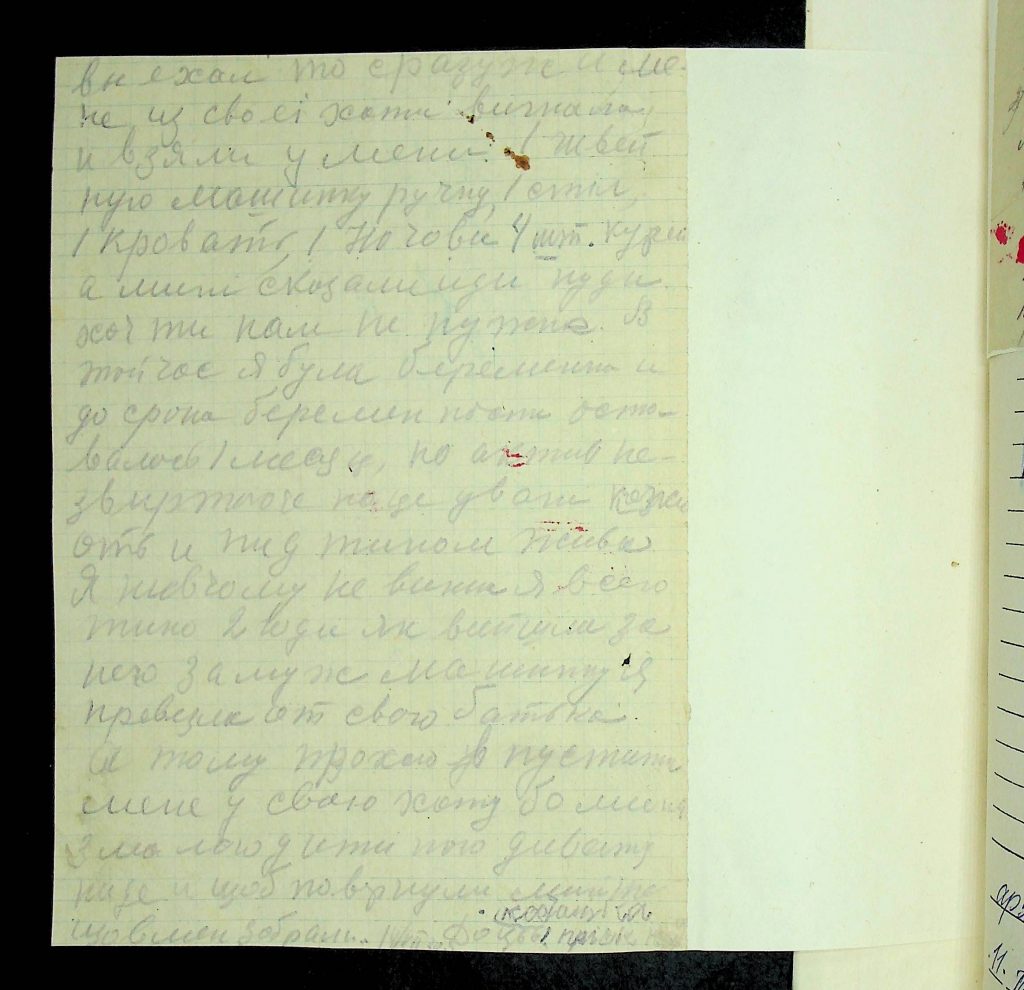 виехал то сразу ж и ме-
не из своеі хати вигнали
и взяли у мени 1 швей
ную машинку ручну, 1 стіл,
1 кровать, 1 ночови 4 шт. курей
а мині сказали иди куди
хоч ти нам не нужна. В
той час я була беременна и
до срока беременности оста-
валось 1 месяц, но актив не-
звиртаючи на це
и під тином живи
Я ні в чому не винна я всего
тико 2 годи як вийшла за
него замуж машинку я
привезла от свого батька.
А тому прохаю в пустити
мене у свою хату бо мини
з малою дитиною діватись
нігде и щоб повірнули
що в мен забрали.
арх
11.